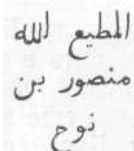 المطيع لله
منصور بن
نوح